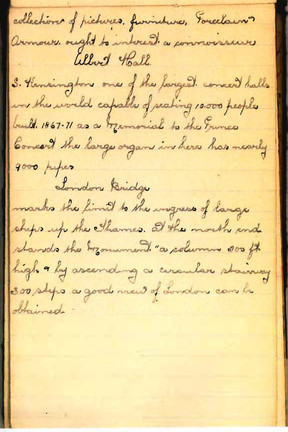 collection of pictures, furniture, Porcelain
Armour, ought to interest a connoisseur
Albert Hall
S. Kensington one of the largest concert halls
in the world capable of seating 10000 people
built 1867-71 as a Memorial to the Prince
Concert the large organ in here has nearly
9000 pipes
London Bridge
marks the limit to the ingress of large
ships up the Thames. At the north end
stands the Monument "a column 200 ft
high & by ascending a circular stairway
300 steps a good view of London can be
obtained.